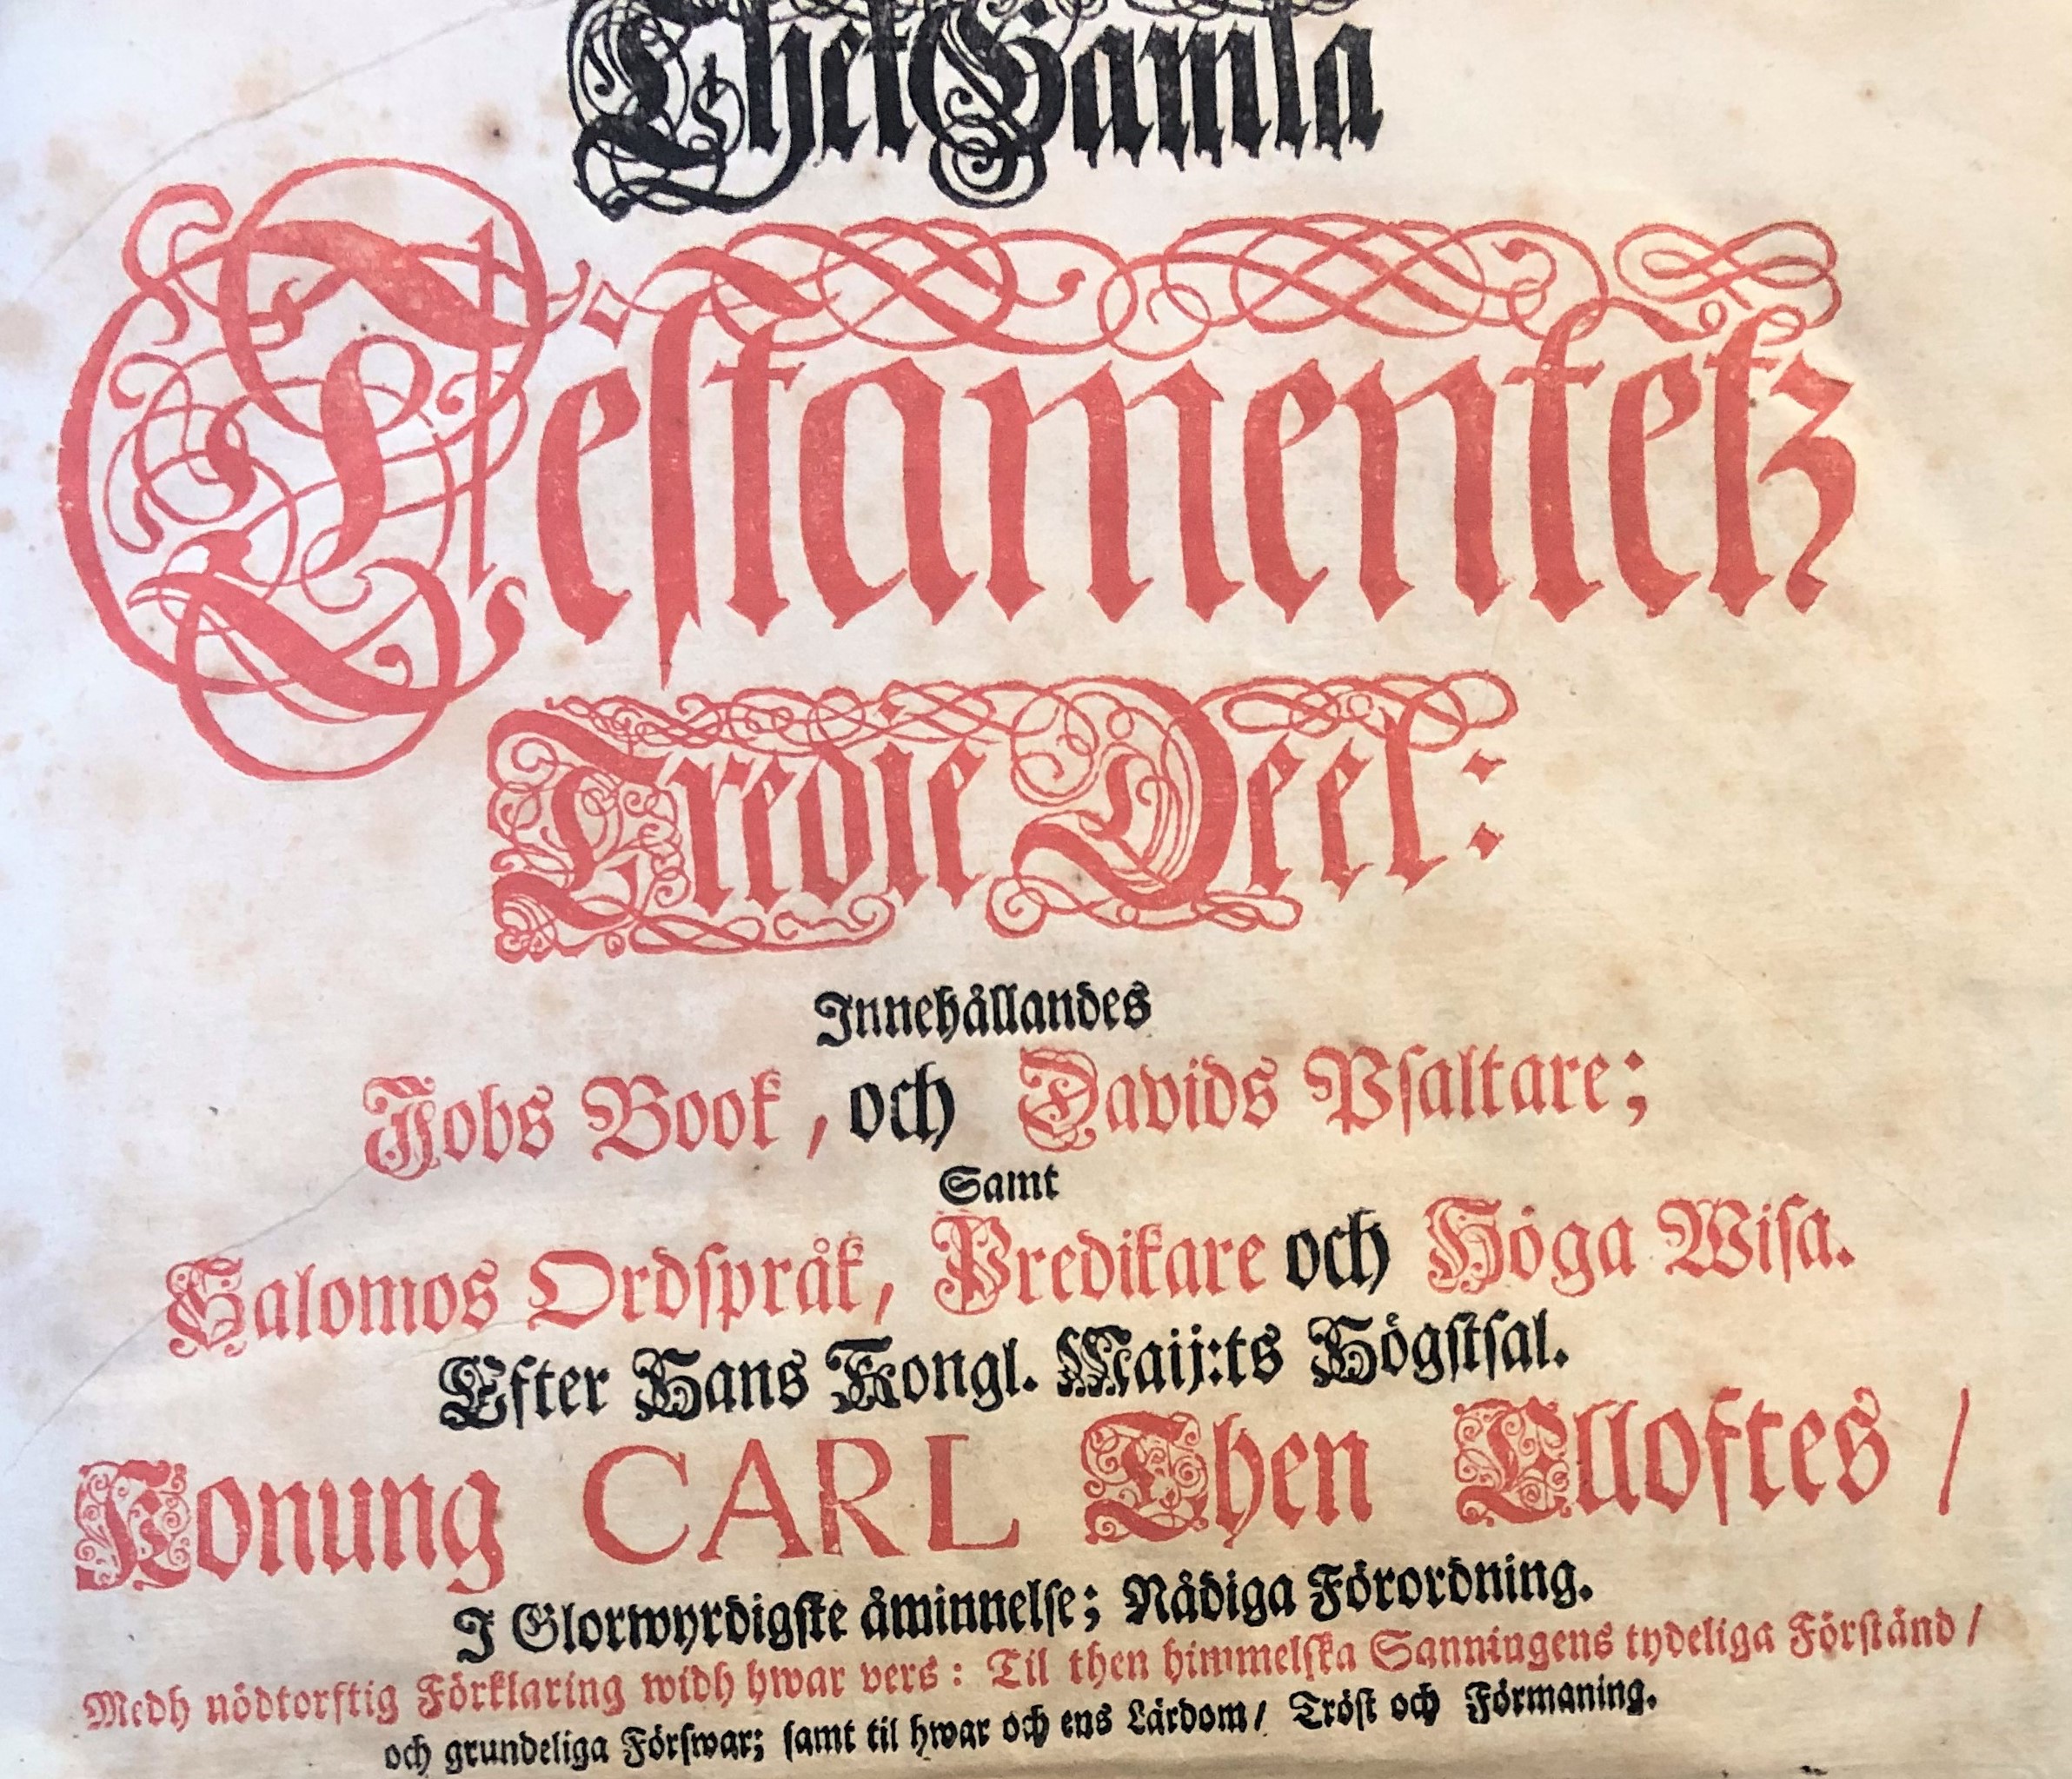 Thet Gamla
Testamentetz
Tredie Deel:
Innehållandes
Jobs Book, och Davids Psaltare;
Samt
Salomos Ordspråk, Predikare och Höga Wisa.
Efter Hans Kongl. Maij:ts Högstsal.
Konung CARL Then Elloftes /
I Glorwyrdigste åminnelse; Nådiga Förordning.
Medh nödtorftig Förklaring widh hwar vers: Til then himmelska Sanningens tydeliga Förstånd /
och grundeliga Förswar; samt til hwar och ens Lärdom / Tröst och Förmaning.